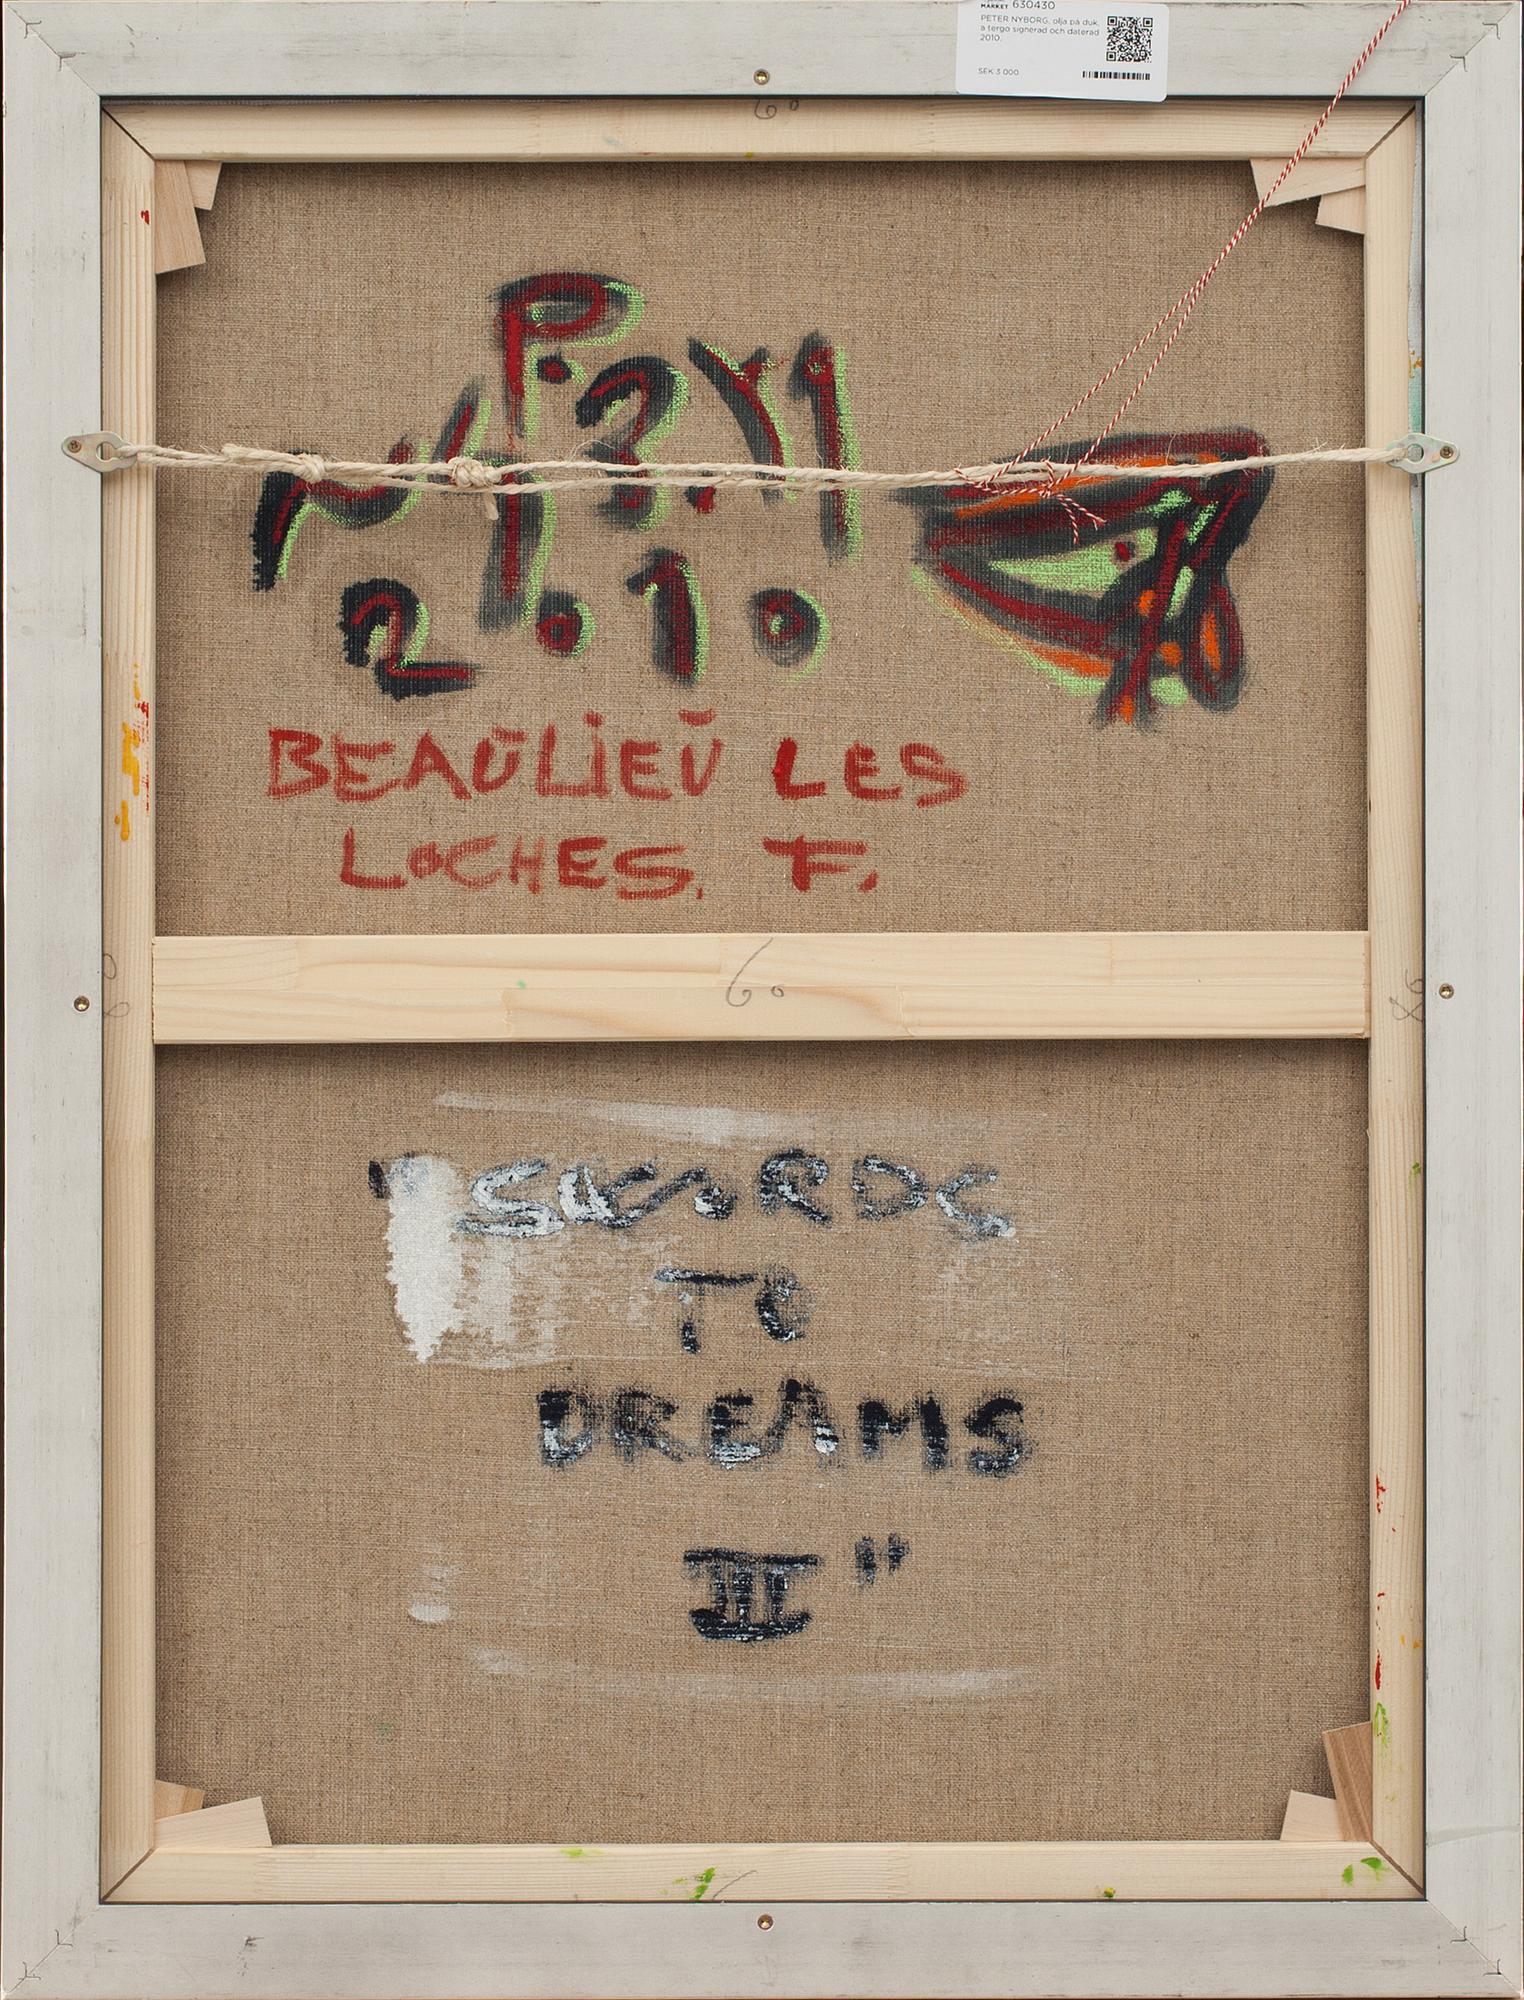 MARKET 630430
PETER NYBORG, olja på duk,
a tergo signerad och daterad
2010.
SEK 3 000
60
P.
2010
BEAULIEU LES
LOCHES, F.
80
60
80
SWORDS
TO
DREAMS
III"